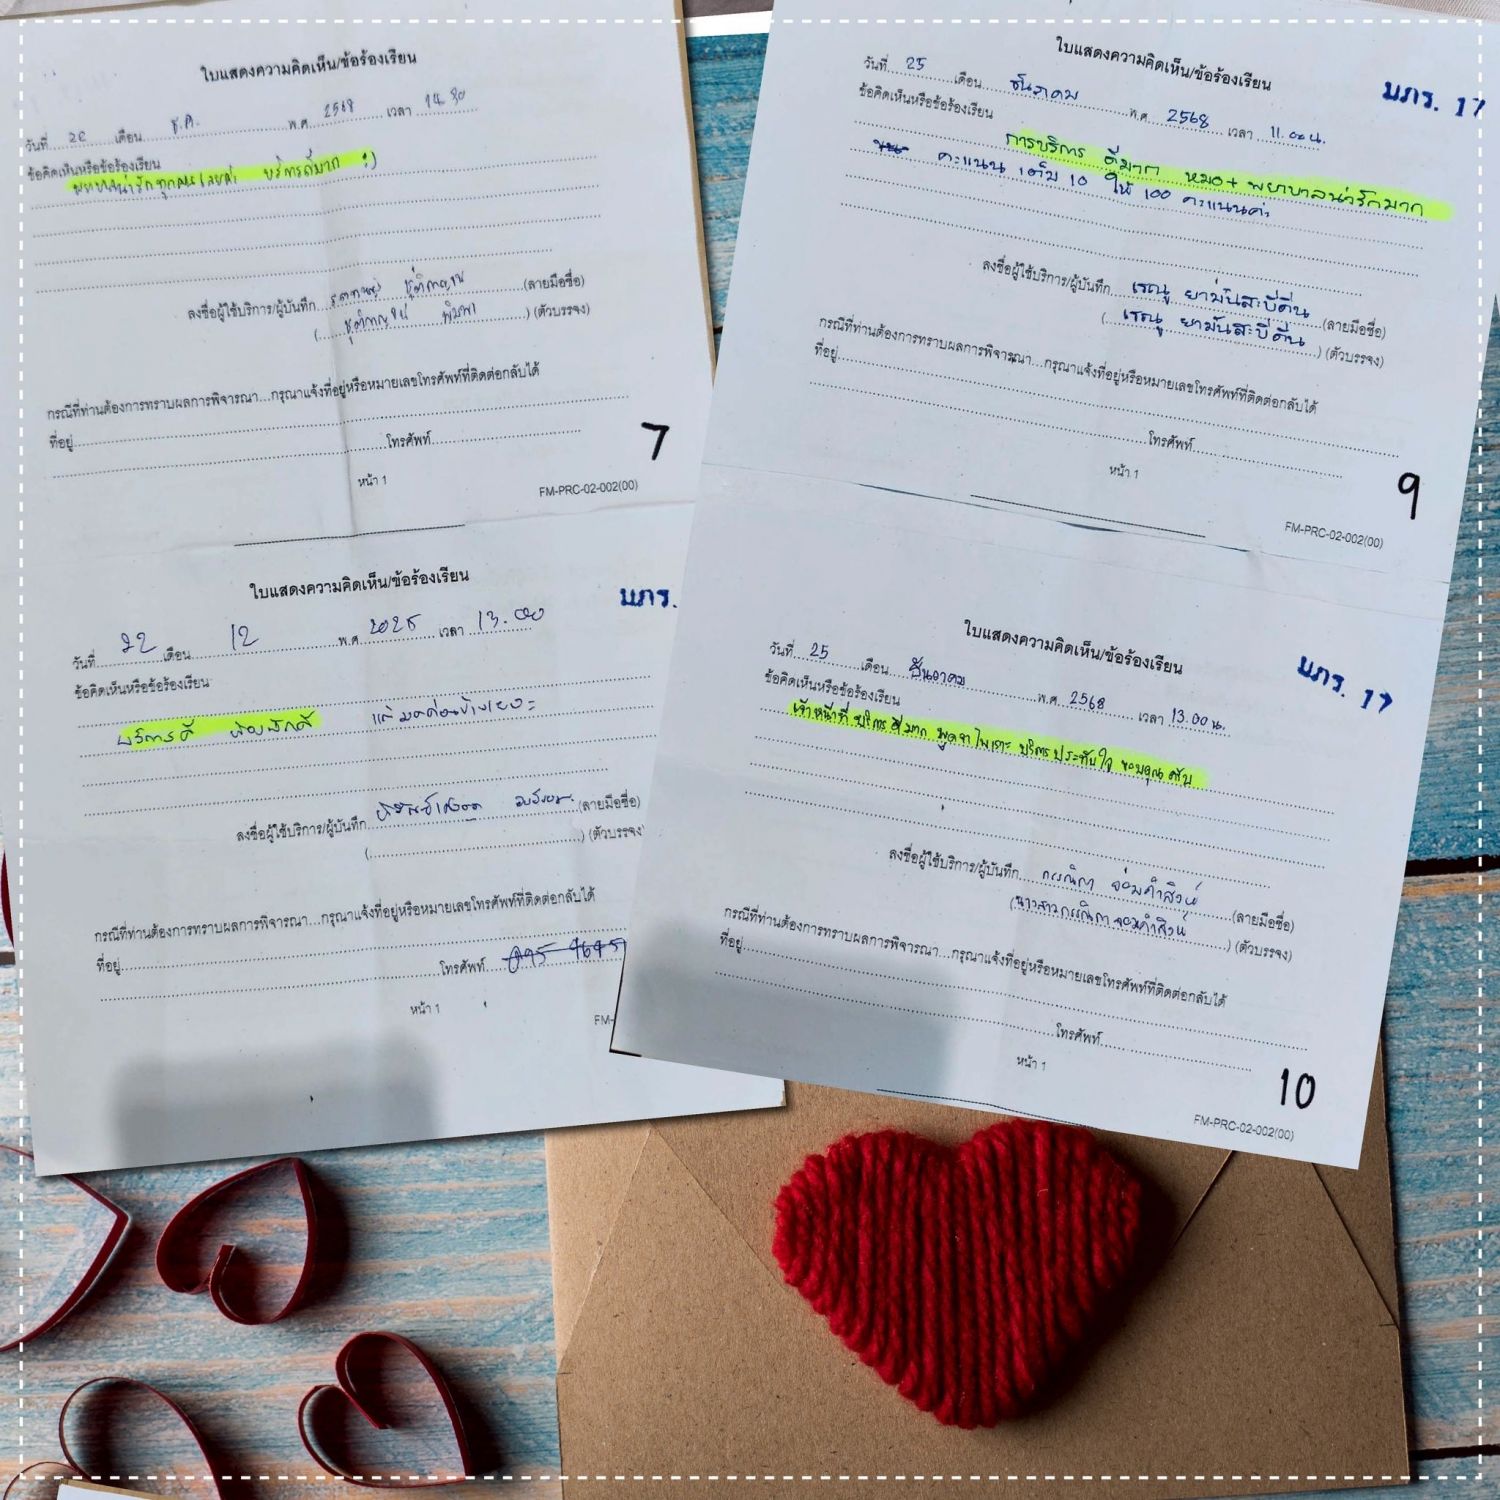 ใบแสดงความคิดเห็น/ข้อร้องเรียน
วันที่ 22 เดือน ธ.ค. พ.ศ. 2568 เวลา 14.30
ข้อคิดเห็นหรือข้อร้องเรียน
พยาบาลน่ารักทุกคนเลยค่ะ บริการดีมาก :)
ลงชื่อผู้ใช้บริการ/ผู้บันทึก (ลายมือชื่อ)
( ) (ตัวบรรจง)
กรณีที่ท่านต้องการทราบผลการพิจารณา...กรุณาแจ้งที่อยู่หรือหมายเลขโทรศัพท์ที่ติดต่อกลับได้
ที่อยู่
โทรศัพท์
7
หน้า 1
FM-PRC-02-002(00)
ใบแสดงความคิดเห็น/ข้อร้องเรียน
มภร.
วันที่ 22 เดือน 12 พ.ศ. 2025 เวลา 13.00
ข้อคิดเห็นหรือข้อร้องเรียน
บริการดี
ลงชื่อผู้ใช้บริการ/ผู้บันทึก (ลายมือชื่อ)
( ) (ตัวบรรจง)
กรณีที่ท่านต้องการทราบผลการพิจารณา...กรุณาแจ้งที่อยู่หรือหมายเลขโทรศัพท์ที่ติดต่อกลับได้
ที่อยู่
โทรศัพท์
หน้า 1
FM-
ใบแสดงความคิดเห็น/ข้อร้องเรียน
มภร. 17
วันที่ 25 เดือน ธันวาคม พ.ศ. 2568 เวลา 11.00 น.
ข้อคิดเห็นหรือข้อร้องเรียน
การบริการ ดีมาก หมอ + พยาบาลน่ารักมาก
คะแนน เต็ม 10 ให้ 100 คะแนนค่ะ
ลงชื่อผู้ใช้บริการ/ผู้บันทึก เรณู ยามันสะบีดีน (ลายมือชื่อ)
( เรณู ยามันสะบีดีน ) (ตัวบรรจง)
กรณีที่ท่านต้องการทราบผลการพิจารณา...กรุณาแจ้งที่อยู่หรือหมายเลขโทรศัพท์ที่ติดต่อกลับได้
ที่อยู่
โทรศัพท์
หน้า 1
9
FM-PRC-02-002(00)
ใบแสดงความคิดเห็น/ข้อร้องเรียน
มภร. 17
วันที่ 25 เดือน ธันวาคม พ.ศ. 2568 เวลา 13.00 น.
ข้อคิดเห็นหรือข้อร้องเรียน
เจ้าหน้าที่ บริการ ดีมาก พูดจาไพเราะ บริการ ประทับใจ ขอบคุณ ครับ
ลงชื่อผู้ใช้บริการ/ผู้บันทึก กรรณิกา จ่อมคำสิงห์ (ลายมือชื่อ)
(นางสาวกรรณิกา จ่อมคำสิงห์ ) (ตัวบรรจง)
กรณีที่ท่านต้องการทราบผลการพิจารณา...กรุณาแจ้งที่อยู่หรือหมายเลขโทรศัพท์ที่ติดต่อกลับได้
ที่อยู่
โทรศัพท์
หน้า 1
10
FM-PRC-02-002(00)